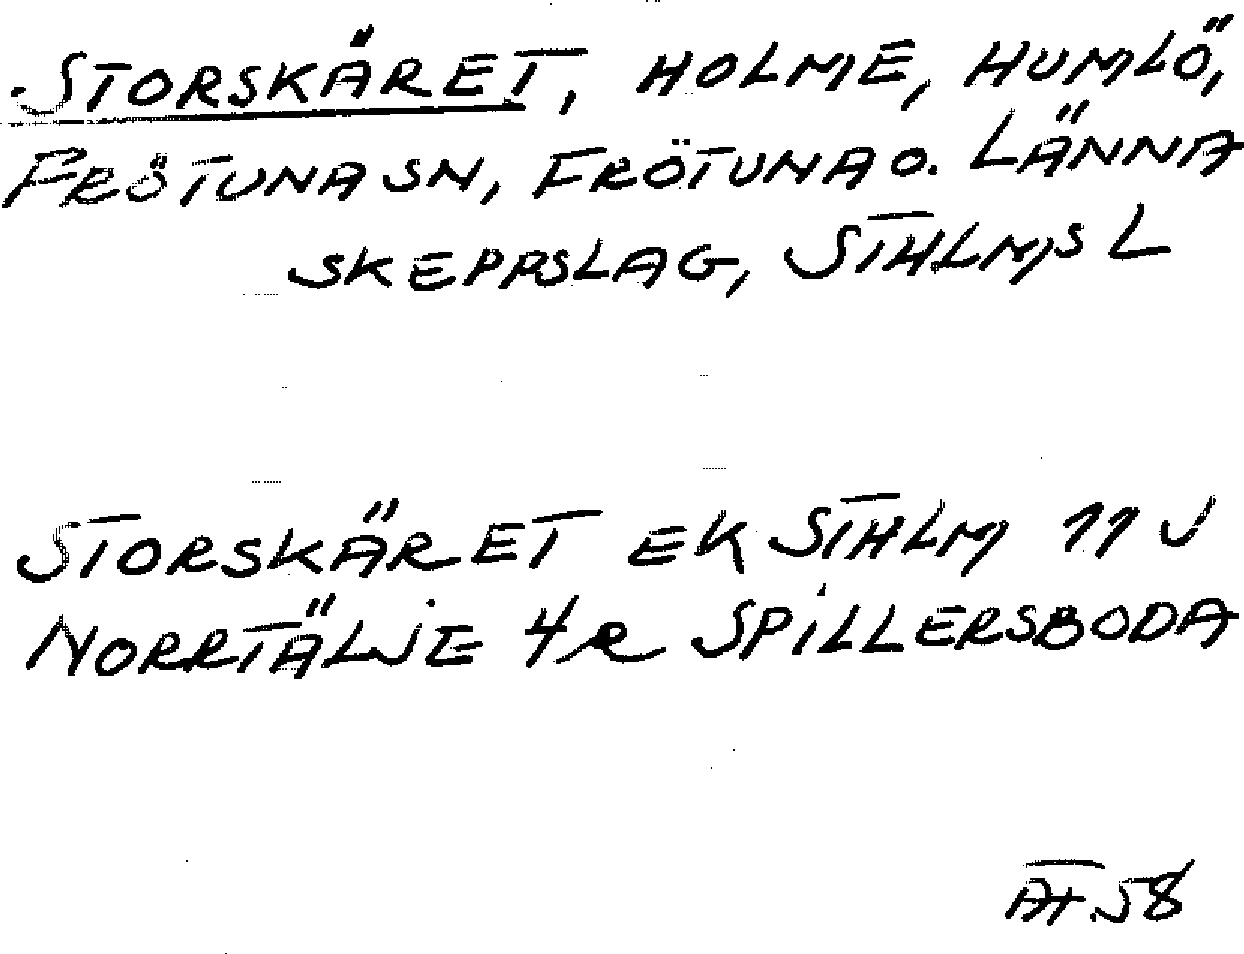 STORSKÄRET, HOLME, HUMLÖ,
FRÖTUNA SN, FRÖTUNA O. LÄNNA
SKEPPSLAG, STHLMS L
STORSKÄRET EK STHLM 11 V
NORRTÄLJE 4R SPILLERSBODA
AT. 58